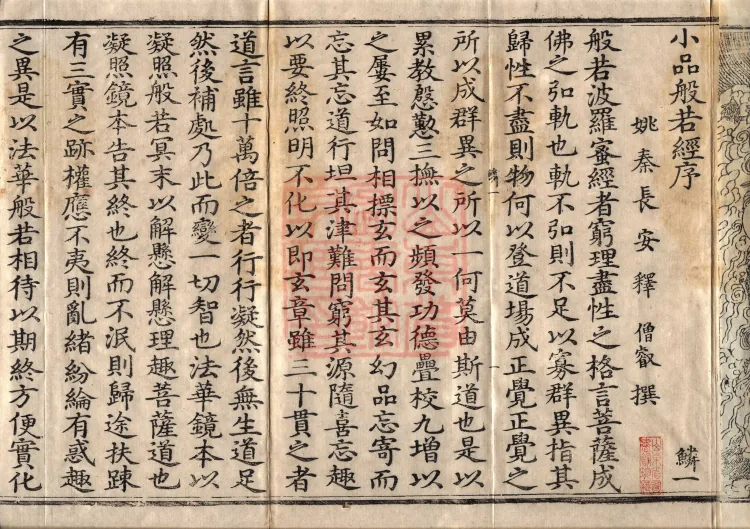 小品般若經序
姚秦長安釋僧叡撰
鱗一
般若波羅蜜經者窮理盡性之格言菩薩成
佛之弘軌也軌不弘則不足以寡群異指其
歸性不盡則物何以登道場成正覺正覺之
所以成群異之所以一何莫由斯道也是以
累教慇懃三撫以之頻發功德疊校九增以
之屢至如問相摽玄而玄其玄幻品忘寄而
忘其忘道行坦其津難問窮其源隨喜忘趣
以要終照明不化以即玄章雖三十貫之者
道言雖十萬倍之者行行凝然後無生道足
然後補處乃此而變一切智也法華鏡本以
凝照般若冥末以解懸解懸理趣菩薩道也
凝照鏡本告其終也終而不泯則歸途扶踈
有三實之跡權應不夷則亂緒紛綸有惑趣
之異是以法華般若相待以期終方便實化